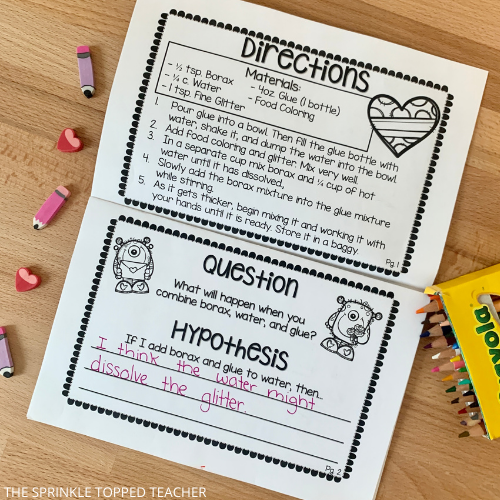 Directions
Materials:
- ½ tsp. Borax
- ¼ c. Water
- 1 tsp. Fine Glitter
- 4oz. Glue (1 bottle)
- Food Coloring
1. Pour glue into a bowl. Then fill the glue bottle with
water, shake it, and dump the water into the bowl.
2. Add food coloring and glitter. Mix very well.
3. In a separate cup mix borax and ¼ cup of hot
water until it has dissolved,
4. Slowly add the borax mixture into the glue mixture
while stirring.
5. As it gets thicker, begin mixing it and working it with
your hands until it is ready. Store it in a baggy.
Pg. 1
Question
What will happen when you
combine borax, water, and glue?
Hypothesis
If I add borax and glue to water, then
I think the water might
dissolve the glitter
Pg. 2
THE SPRINKLE TOPPED TEACHER